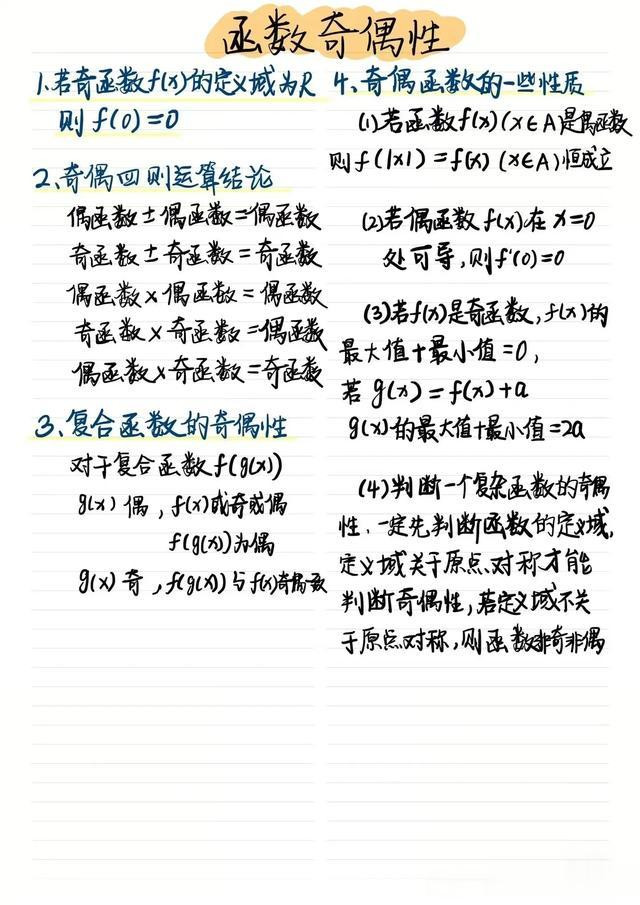 函数奇偶性
1.若奇函数f(x)的定义域为R
则f(0)=0
2、奇偶四则运算结论
偶函数±偶函数=偶函数
奇函数±奇函数=奇函数
偶函数×偶函数=偶函数
奇函数×奇函数=偶函数
偶函数×奇函数=奇函数
3、复合函数的奇偶性
对于复合函数f(g(x))
g(x)偶,f(x)或奇或偶
f(g(x))为偶
g(x)奇,f(g(x))与f(x)奇偶一致
4、奇偶函数的一些性质
(1)若函数f(x)(x∈A)是偶函数
则f(|x|)=f(x)(x∈A)恒成立
(2)若偶函数f(x)在x=0
处可导,则f'(0)=0
(3)若f(x)是奇函数,f(x)的
最大值+最小值=0,
若g(x)=f(x)+a
g(x)的最大值+最小值=2a
(4)判断一个复杂函数的奇偶
性.一定先判断函数的定义域,
定义域关于原点对称才能
判断奇偶性,若定义域不关
于原点对称,则函数非奇非偶